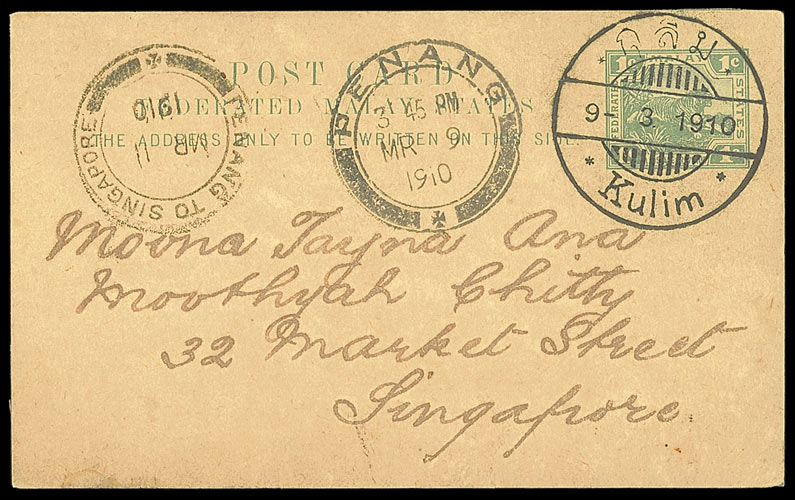 POST CARD
FEDERATED MALAY STATES
THE ADDRESS ONLY TO BE WRITTEN ON THIS SIDE.
PENANG TO SINGAPORE
MR 11
1910
PENANG
3 45 PM
MR 9
1910
กูลิม
9 3 1910
Kulim
1c 1c
STATES
1c
Moona Tayna Ana
Moothyah Chitty
32 Market Street
Singapore